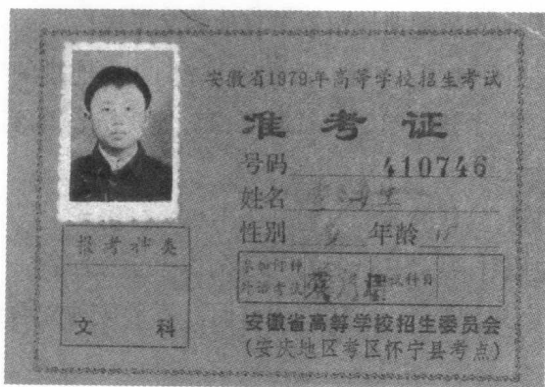 安徽省1979年高等学校招生考试
准考证
号码 410746
姓名
性别 年龄
报考种类
参加何种
外语考试
试科目
文科
安徽省高等学校招生委员会
(安庆地区考区怀宁县考点)